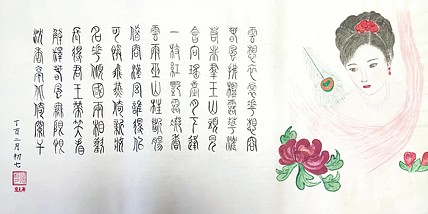 雲想衣裳花想容
春風拂檻露華濃
若非群玉山頭見
會向瑤臺月下逢
一枝紅艷露凝香
雲雨巫山枉斷腸
借問漢宮誰得似
可憐飛燕倚新妝
名花傾國兩相歡
長得君王帶笑看
解釋春風無限恨
沈香亭北倚闌干
丁酉二月初七